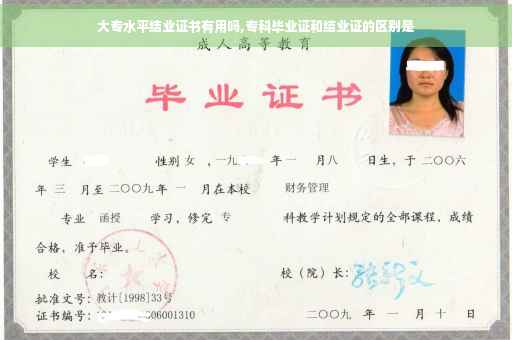 大专水平结业证书有用吗,专科毕业证和结业证的区别是
成人高等教育
毕业证书
学生 性别 女 ,一九 年 一 月八 日生,于 二〇〇六
年 三 月至 二〇〇九 年 一 月在本校 财务管理
专业 函授 学习,修完 专 科教学计划规定的全部课程,成绩
合格,准予毕业。
校 名: 校(院)长:
批准文号:教计[1998]33号
证书编号: 06001310 二〇〇九 年 一 月 十 日